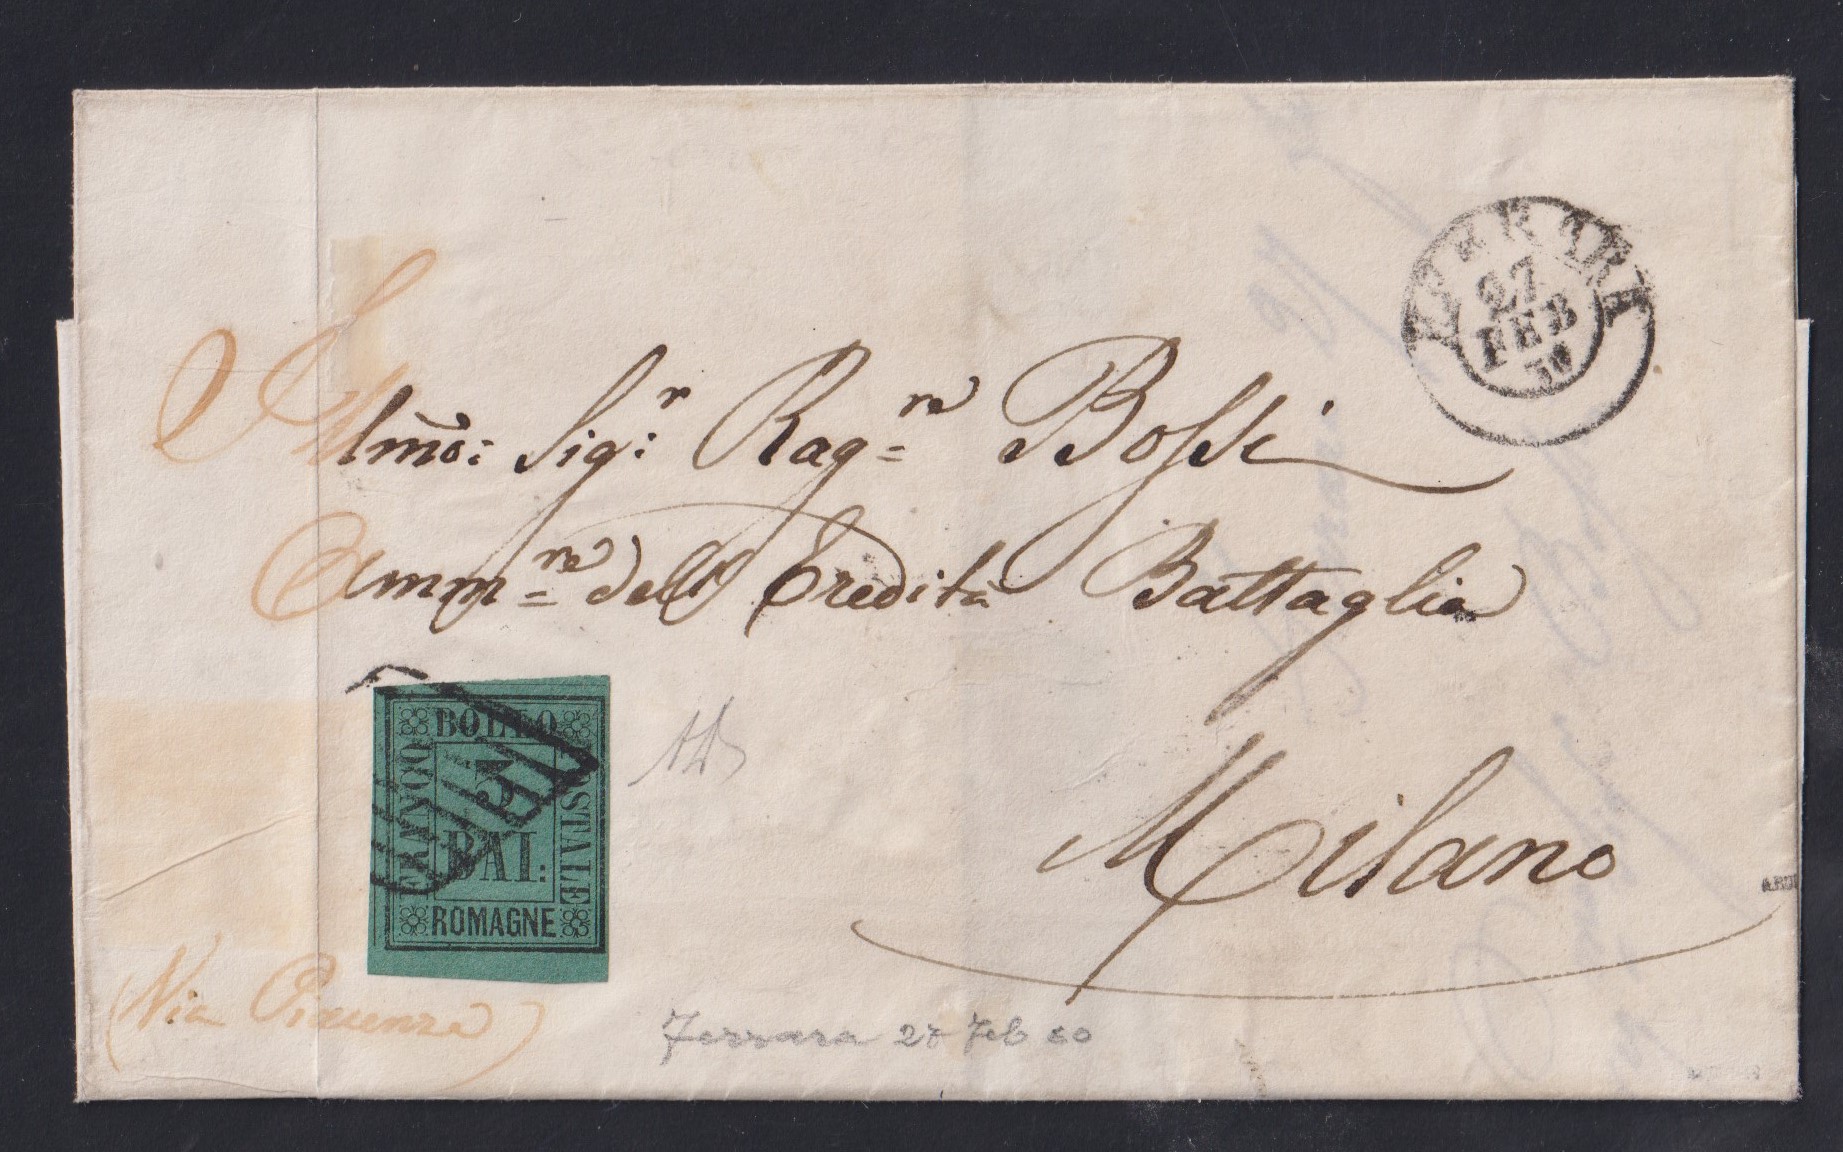 FERRARA
27
FEB
Illmo: Sig:r Rag=re Bossi
Amm=re dell' Eredità Battaglia
Milano
FRANCO
BOLLO
POSTALE
3
BAI:
ROMAGNE
(Via Piacenza)
Ferrara 27 Feb 60